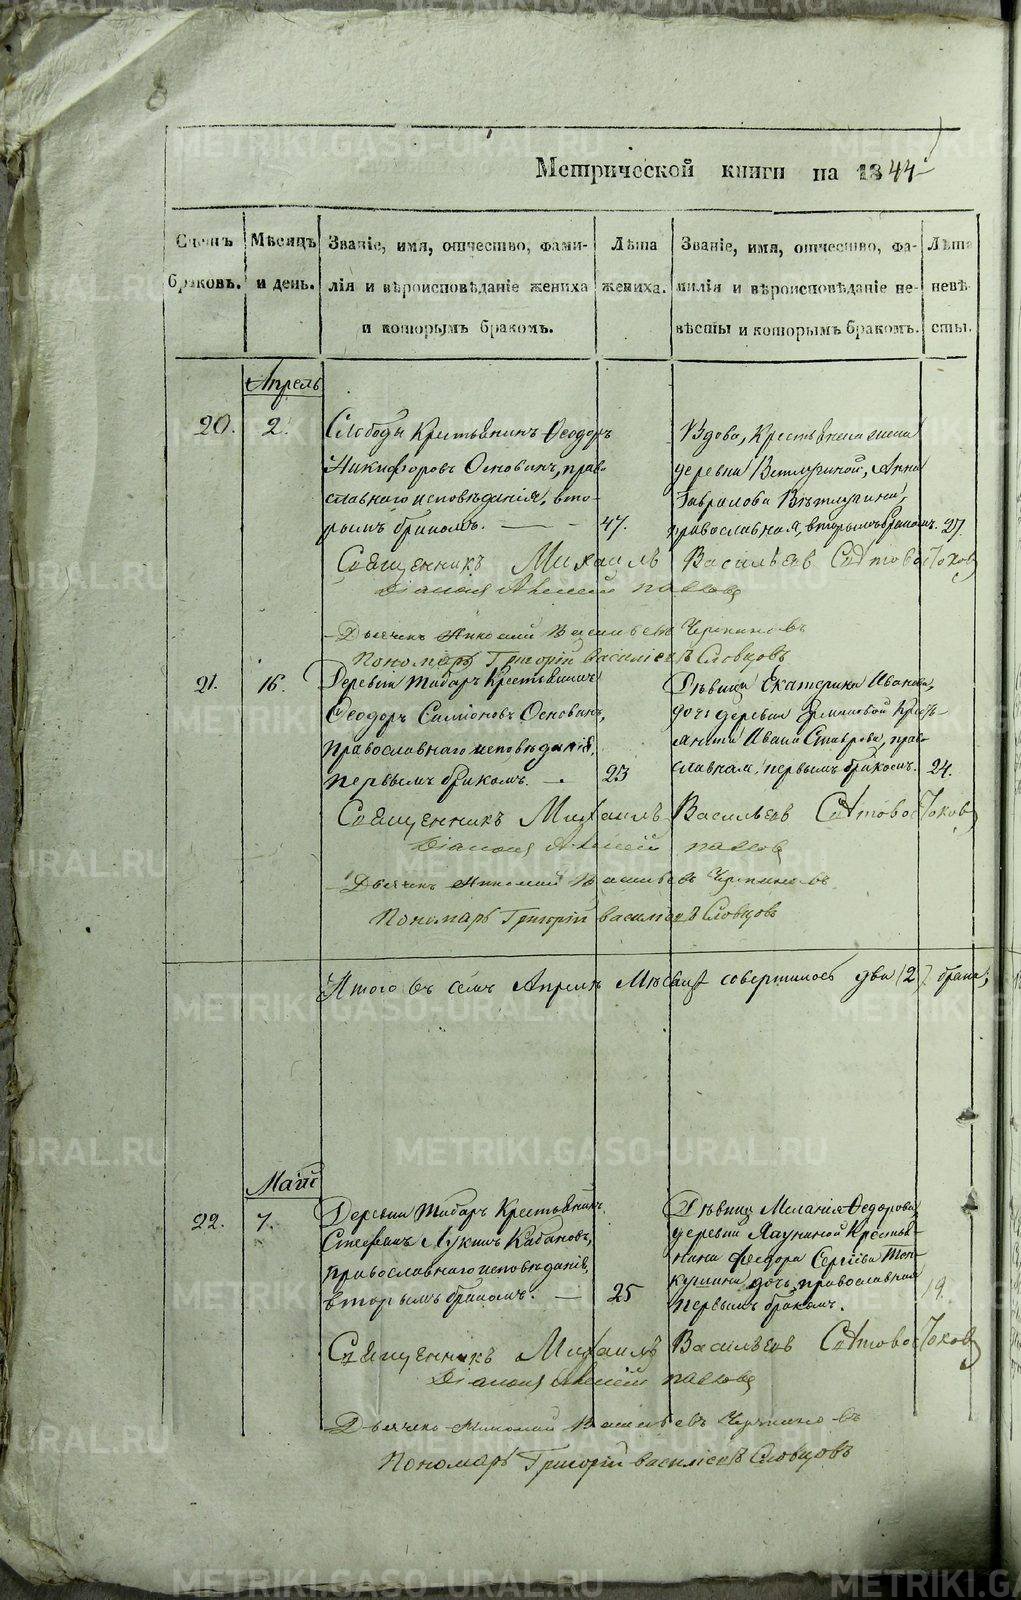 8
Метрической книги на 1844
Счетъ браковъ.
Мѣсяцъ и день.
Званіе, имя, отчество, фами-
лія и вѣроисповѣданіе жениха
и которымъ бракомъ.
Лѣта
жениха.
Званіе, имя, отчество, фа-
милія и вѣроисповѣданіе не-
вѣсты и которымъ бракомъ.
Лѣта
невѣ
сты.
Апрель
20.
2.
Слободы Крестьянинъ Ѳеодоръ
Никифоровъ Основинъ, право
славнаго исповѣданія, вто-
рымъ бракомъ.
47.
Вдова, Крестьянская жена
деревни Ветлугиной, Анна
Гаврилова Вѣтлугина,
православная, вторымъ бракомъ.
27.
Священникъ Михаилъ Васильевъ
Діаконъ Алексѣй Павловъ
Дьячекъ Николай Васильевъ
Пономарь Григорій Василіевъ Словцовъ
21.
16.
Деревни Табаръ Крестьянинъ
Ѳеодоръ Симіоновъ Основинъ,
православнаго исповѣданія,
первымъ бракомъ.
23
Дѣвица Екатерина Иванова,
дочь деревни Крестъ-
янина Ивана право
славная, первымъ бракомъ.
24.
Священникъ Михаилъ Васильевъ
Діаконъ Алексѣй Павловъ
Дьячекъ Николай Васильевъ
Пономарь Григорій Василіевъ Словцовъ
Итого въ семъ Апрелѣ Мѣсяцѣ совершилось два (2) брака;
Маій
22.
7.
Деревни Табаръ Крестьянинъ
Стефанъ Лукинъ Кабановъ,
православнаго исповѣданія,
вторымъ бракомъ.
25
Дѣвица Меланія Ѳедорова,
деревни Крестья-
нина Ѳеодора Сергіева
дочь, православная
первымъ бракомъ.
19.
Священникъ Михаилъ Васильевъ
Діаконъ Алексѣй Павловъ
Дьячекъ Николай Васильевъ
Пономарь Григорій Василіевъ Словцовъ
METRIKI.GASO-URAL.RU